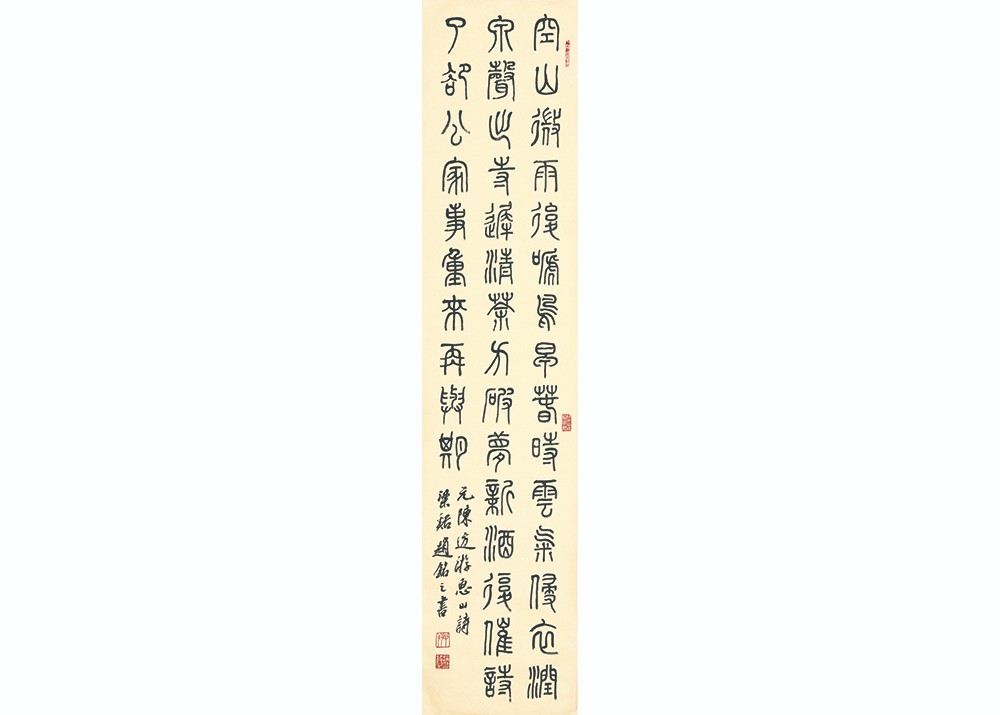 空山微雨後嗁鳥早春時雲氣侵衣潤
泉聲出寺遲清茶方破夢新酒復催詩
了卻公家事重來再與期
元陳游惠山詩
梁谿趙銘之書